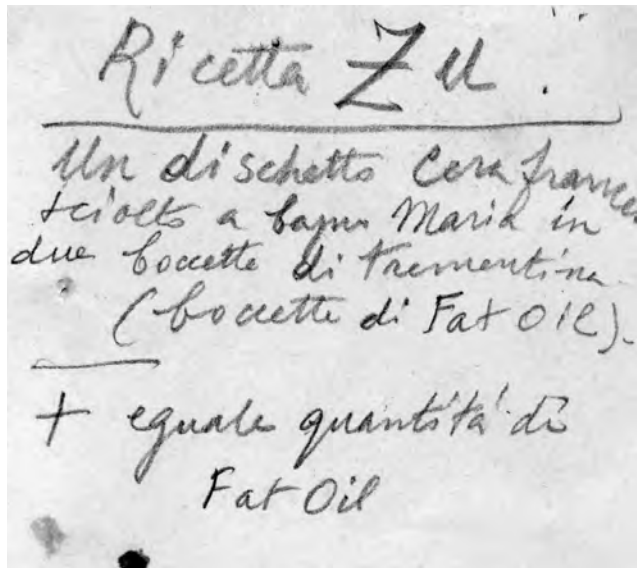 Ricetta Zu.
Un dischetto Cera
sciolto a bagno Maria in
due boccette di trementina
(boccette di Fat Oil).
+ eguale quantità di
Fat Oil